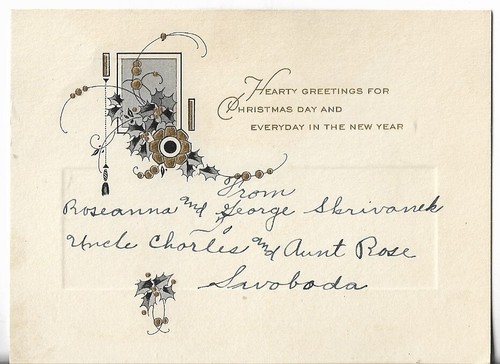 HEARTY GREETINGS FOR
CHRISTMAS DAY AND
EVERYDAY IN THE NEW YEAR
From
Roseanna and George Skrivanek
Uncle Charles and Aunt Rose
Svoboda